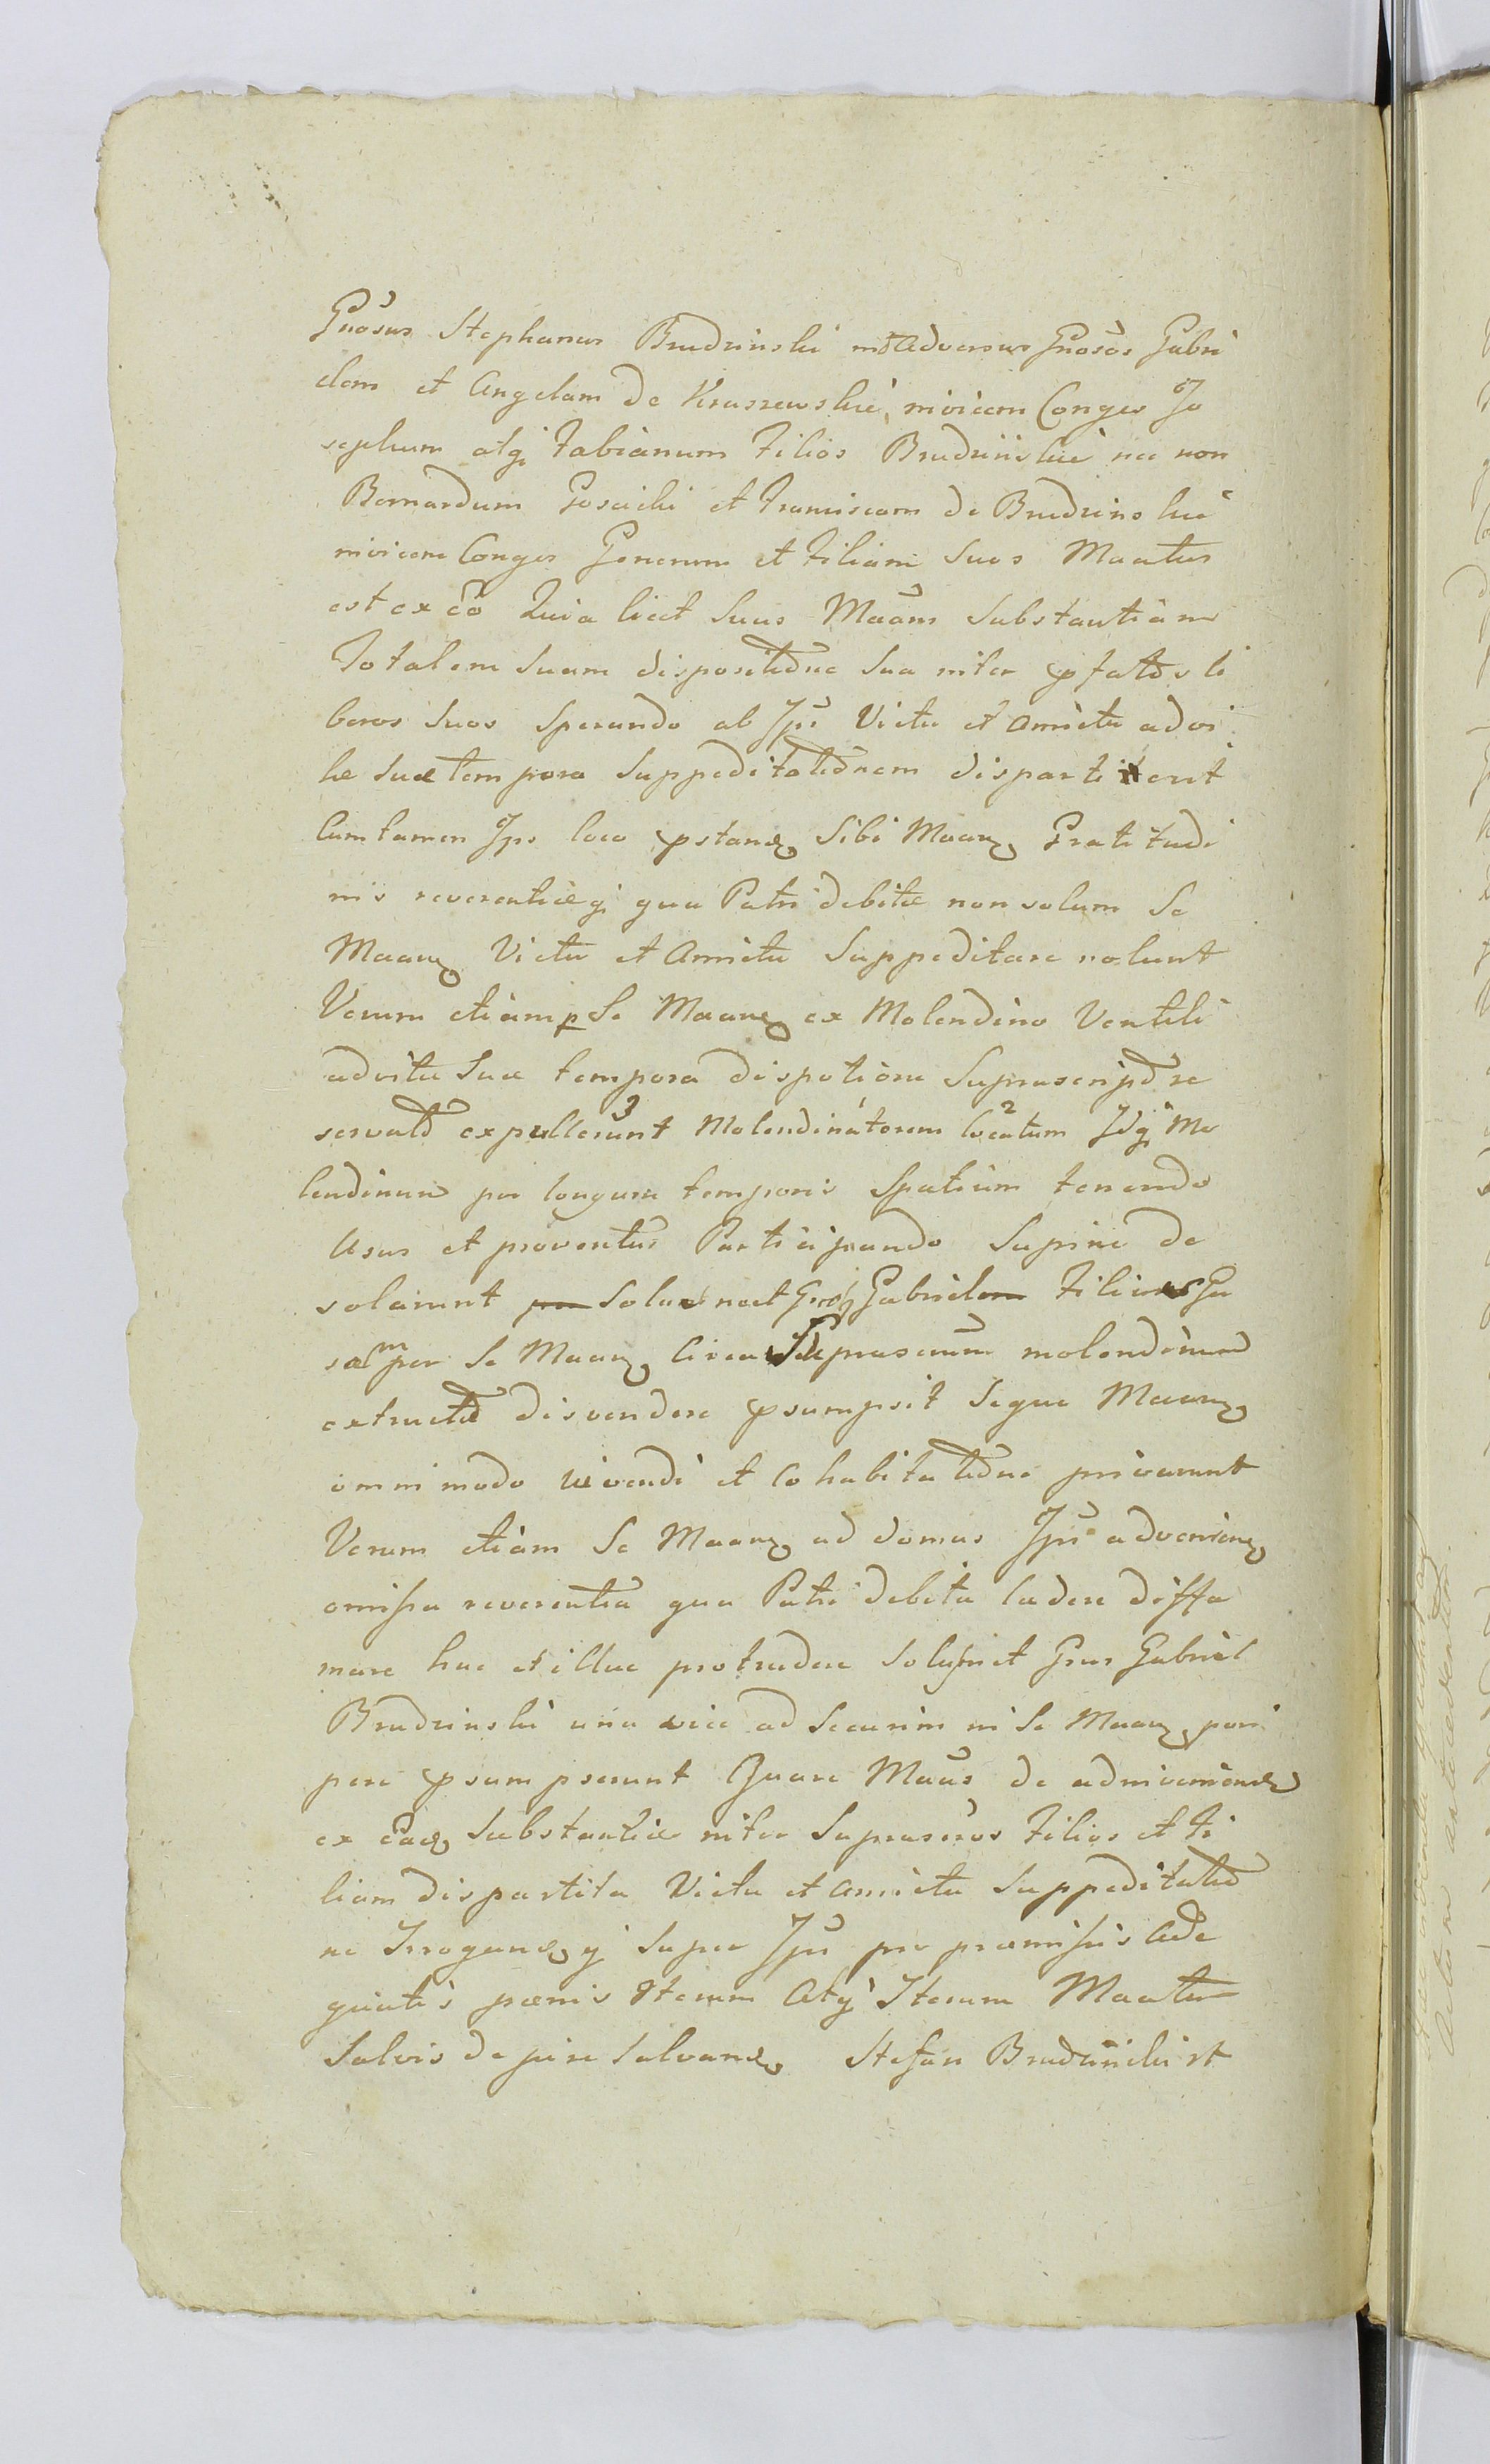 Gnosus Stephanus Brudzinski mt Adversus Gnosos Gabri
elem et Angelam de Kraszewskie invicem Conges Jo
sephum atq Fabianum Filios Brudzinskie nec non
Bernardum Gosciki et Franciscam de Brudzinskie
invicem Conges Generum et Filiam Suos Maatur
est ex eo Quia licet Suus Maans Substantiam
Totalem Suam dispositione Sua inter pfatos li
beros Suos Sperando ab Ipis Victu et amictu ad vi
tae Suae tempora Suppeditationem dispartiverit
Cum tamen Ipi loco pstandae Sibi Maan Gratitudi
nis reverentiaeq qua Patri debitae non solum Se
Maan Victu et Amictu Suppeditare nolunt
Verum etiam p Se Maane ex Molendino Ventili
ad vitae Suae tempora dispotione Suprascripto re
servato expullerunt 3 Molendinatorem locatum 2 Idq Mo
lendinum per longum temporis Spatium tenendo
Usus et proventus Participando Supine de
solarunt Solum et Gnos Gabriel Filius Ca
sam per Se Maan Circa Suprascum molendinum
extructa disvendere psumpsit Seque Maan
omnimodo vivendi et Cohabitatione privarunt
Verum etiam Se Maan ad domus Ipis advenien
omissa reverentia qua Patri debita ladere diffa
mare huc et illuc protrudere Solent Gnus Gabriel
Brudzinski una vice ad Securim in Se Maan pori
pere psumpserunt Quare Maans de adinveniend
ex Eade Substantiae inter Suprascos Filios et Fi
liam dispartita Victu et amictu Suppeditatio
ne Irrogandq Super Ipis pro praemissis Ade
quatis paenis Iterum Atq Iterum Maatur
Salvis de jure Salvand Stefan Brudzinski